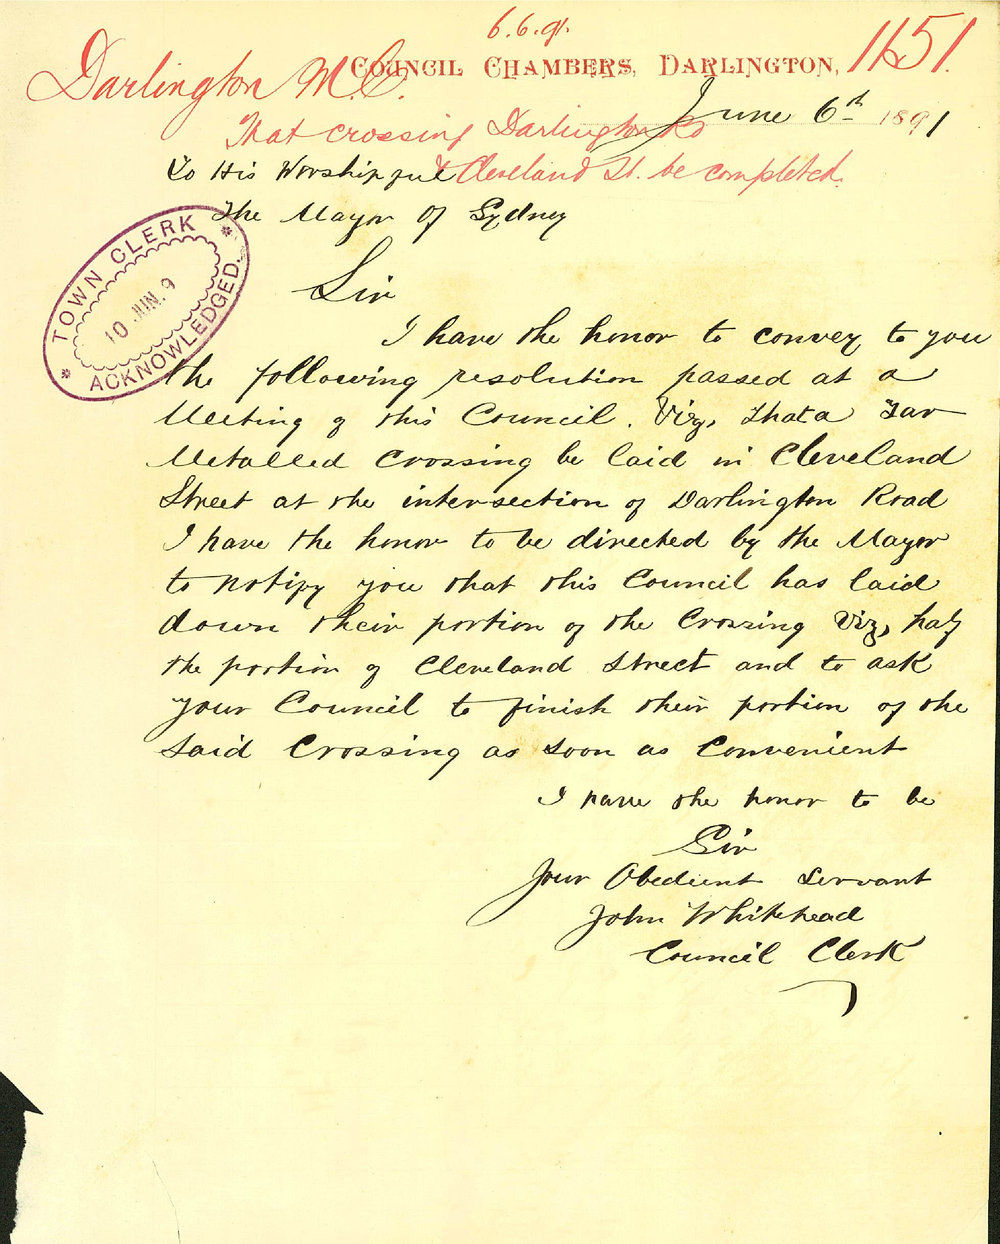 6.6.91.
1151.
Darlington M.C.
COUNCIL CHAMBERS, DARLINGTON,
June 6th 1891
That crossing Darlington Rd
& Cleveland St. be completed.
To His Worshipful
The Mayor of Sydney
TOWN CLERK
10 JUN. 9
ACKNOWLEDGED.
Sir
I have the honor to convey to you
the following resolution passed at a
Meeting of this Council. Viz, That a Tar
Metalled Crossing be laid in Cleveland
Street at the intersection of Darlington Road
I have the honor to be directed by the Mayor
to notify you that this Council has laid
down their portion of the Crossing Viz, half
the portion of Cleveland Street and to ask
your Council to finish their portion of the
said Crossing as soon as Convenient
I have the honor to be
Sir
Your Obedient Servant
John Whitehead
Council Clerk